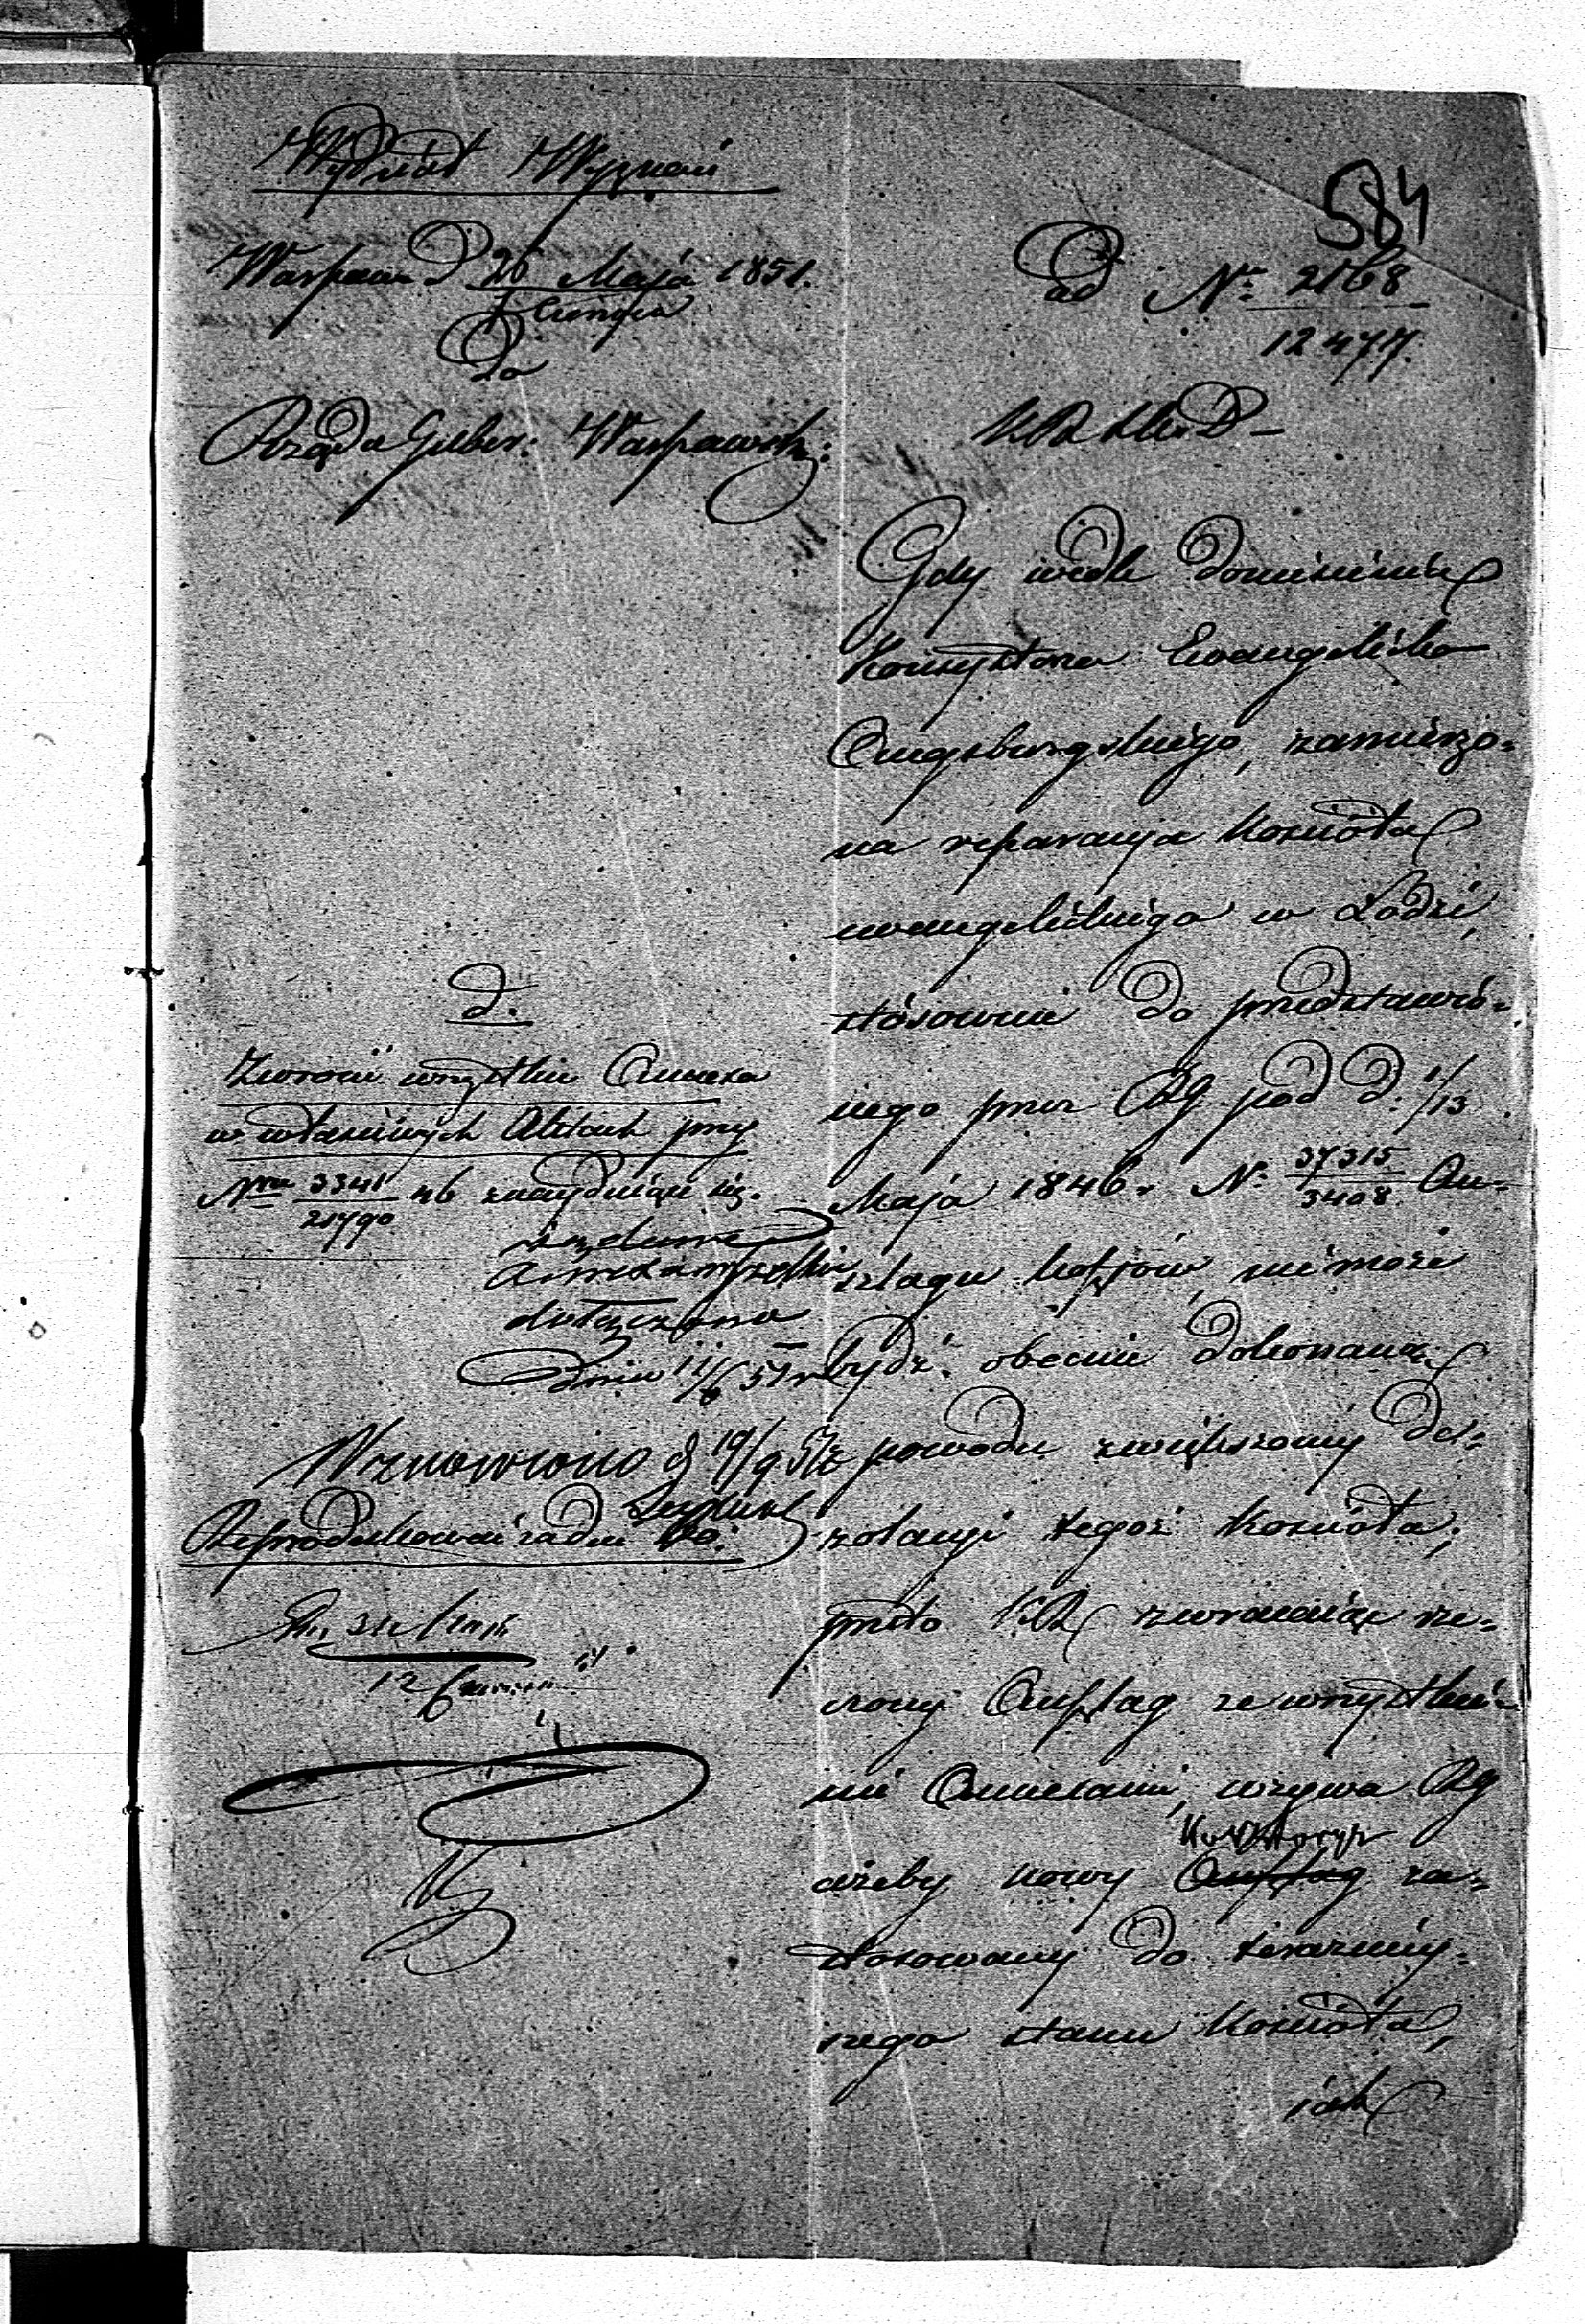 Wydział Wyznań
584
Warszawa d 26 Maja 1851.
7 Czerwca
ad Nr 2168
12477.
Do
Rządu Guber: Warszawsk:
K.R.S.W.D.
Gdy wedle doniesienia
Konsystorza Ewangelicko
Augsburgskiego, zamierzo-
na reparacya Kościoła
ewangelickiego w Łodzi,
stósownie do przedstawio-
nego przez RG. pod d. 1/13
Maja 1846 r. N. 37315/3408 An-
szlagu kosztów, nie może
bydź obecnie dokonaną
z powodu zwiększonej de-
zolacyi tegoż Kościoła;
przeto K.R. zwracając rze-
czony Anszlag ze wszystkie-
mi Annexami, wzywa RG
Kosztorys
ażeby nowy Anszlag za-
stosowany do teraźniej-
szego stanu Kościoła,
iak
d.
Zwrócić wszystkie Annexa
w właściwych Aktach przy
Nrze 3341/21790 46 znajdujące się.
dołączono
dnia 11/6 51 r
Wznowiono d 19/9 51
Reprodukować zadni